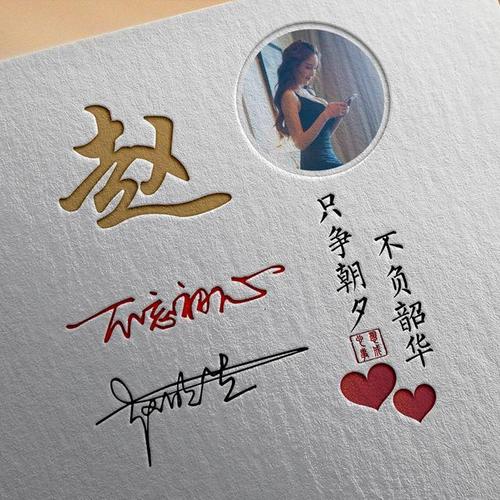 赵
不忘初心
只争朝夕
不负韶华